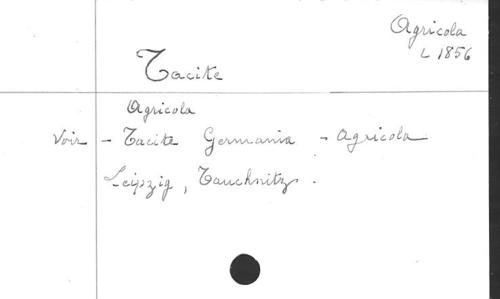 Agricola
L 1856
Tacite
Agricola
Voir - Tacite Germania - Agricola
Leipzig, Tauchnitz.